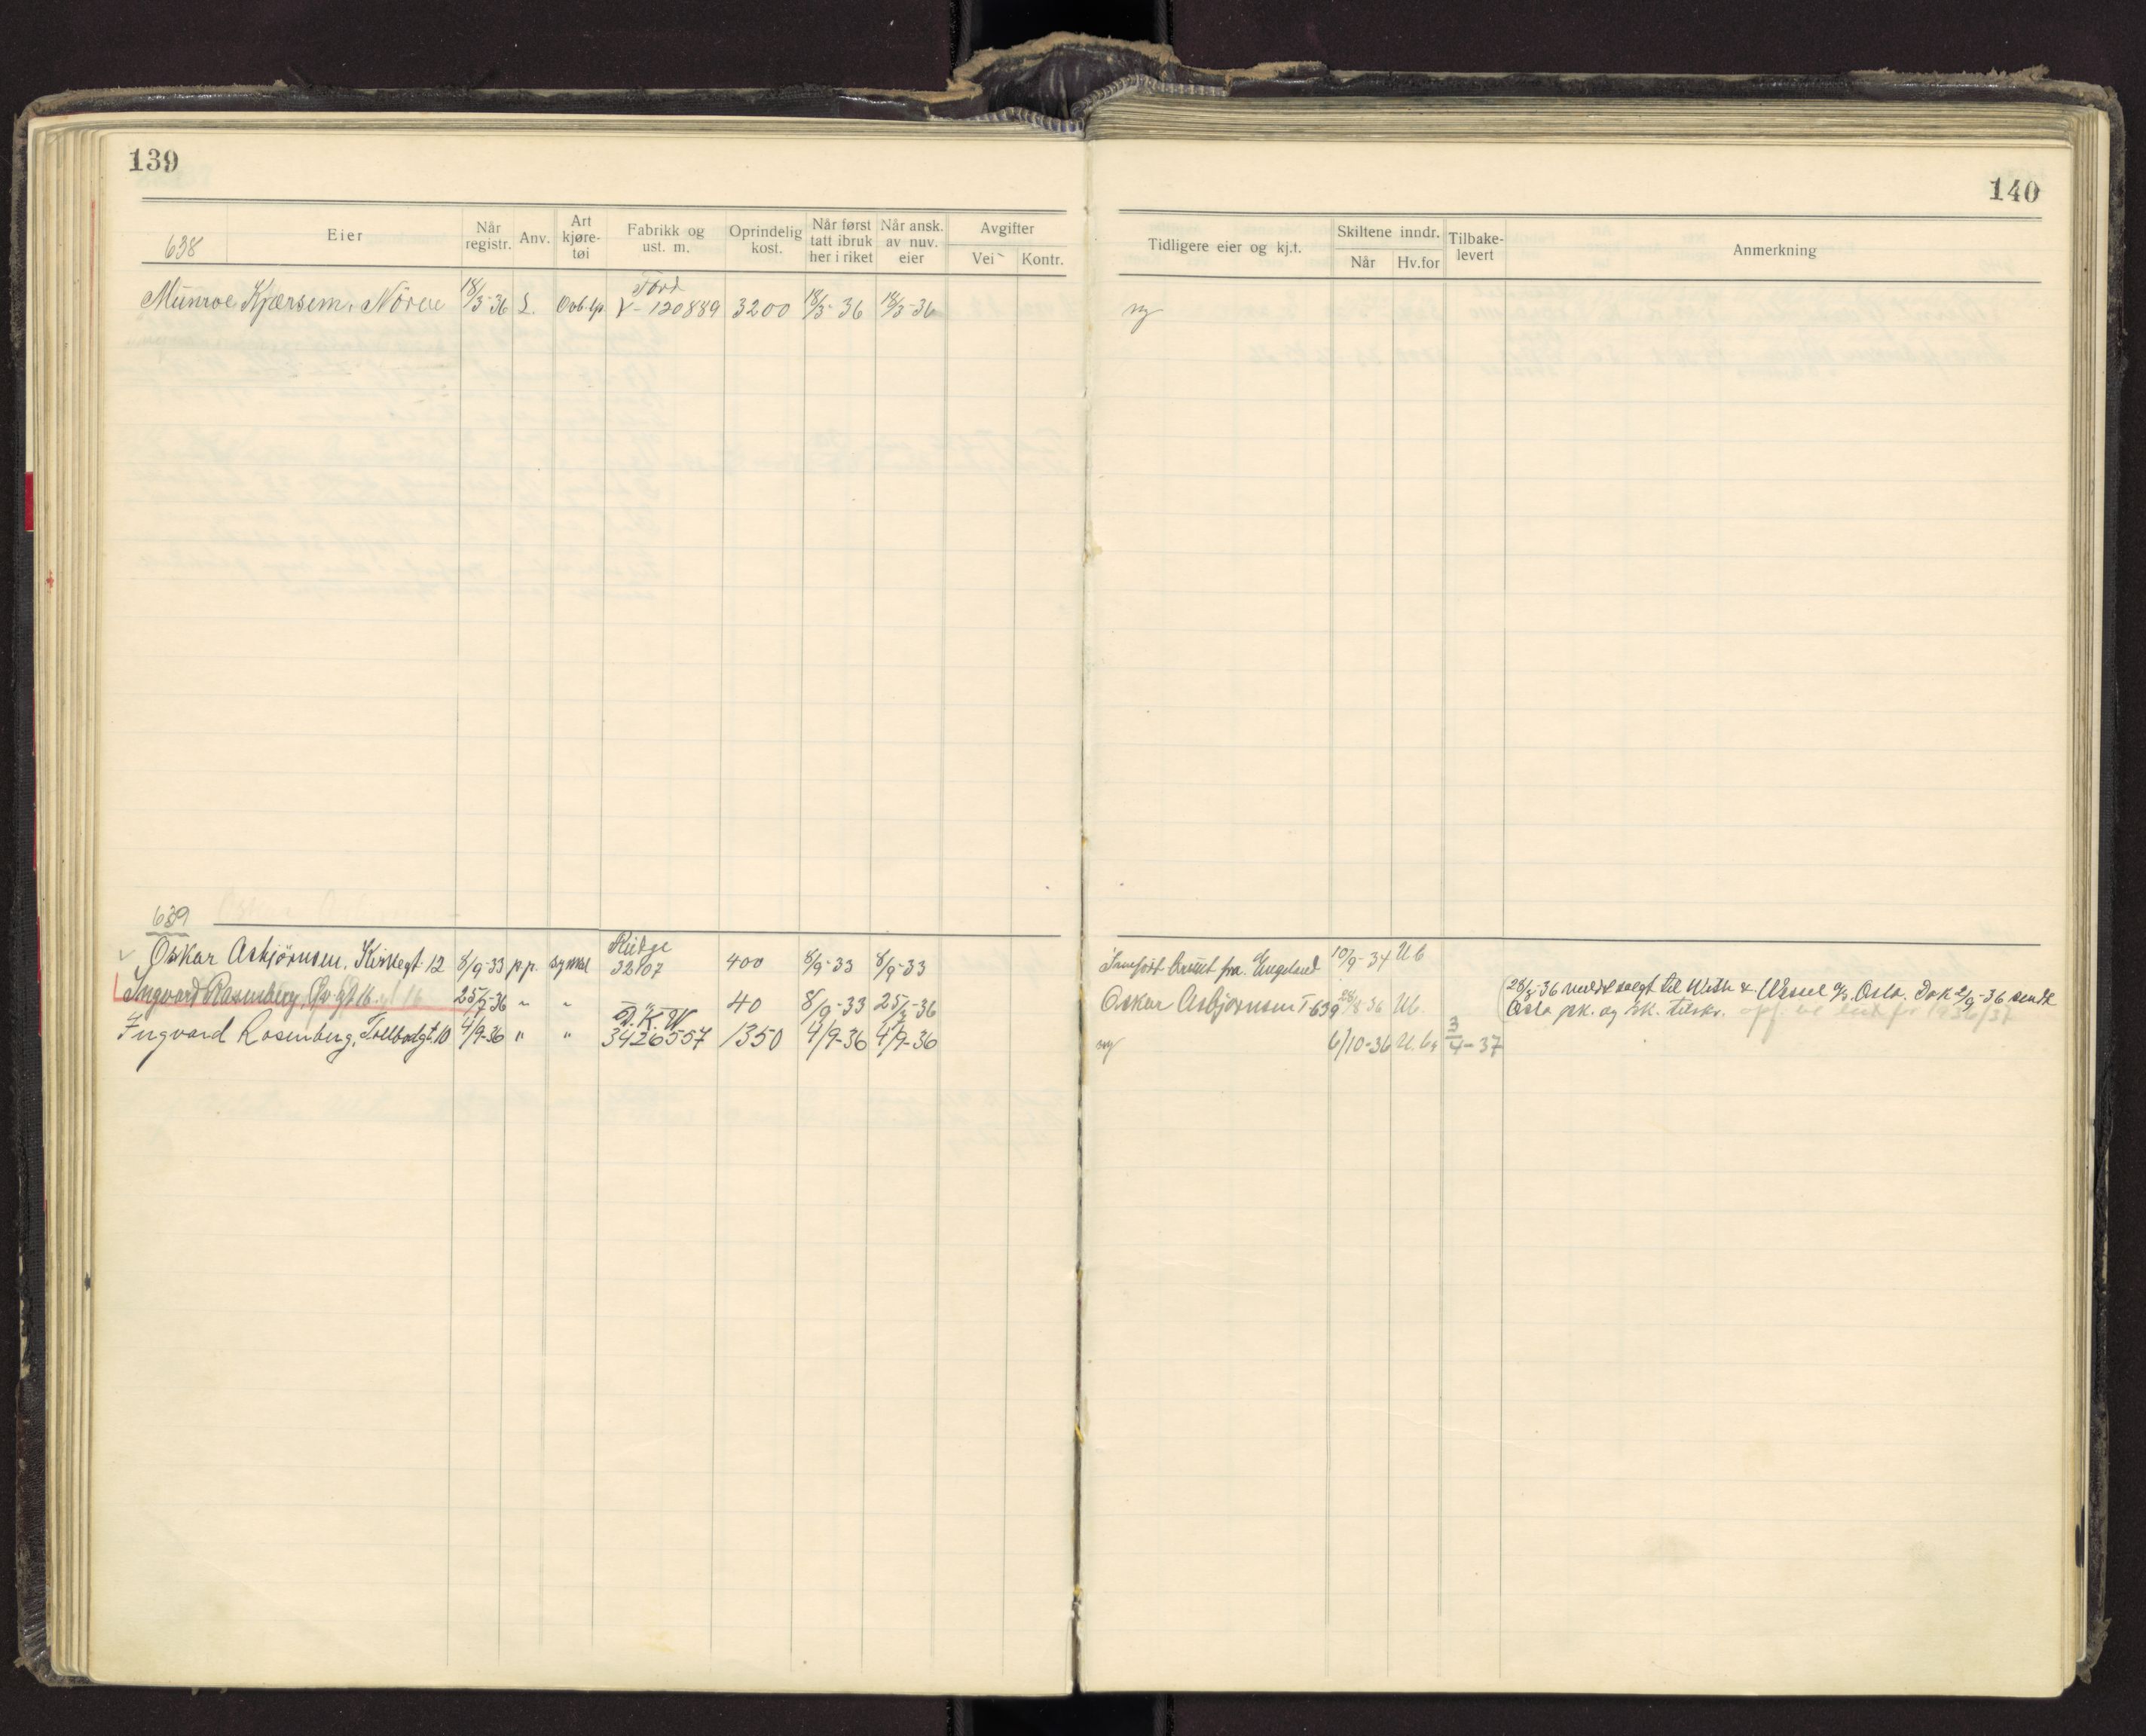 139
140
638
Eier
Når registr.
Anv.
Art kjøre-tøi
Fabrikk og ust. m.
Oprindelig kost.
Når først tatt ibruk her i riket
Når ansk. av nuv. eier
Avgifter
Vei
Kontr.
Tidligere eier og kj.t.
Skiltene inndr.
Når
Hv.for
Tilbake-levert
Anmerkning
Munroe Kjærsem, Nörve 18/3-36 L. Ford V-120889 3200 18/3-36 18/3-36 ny
639
Oskar Asbjörnsen, Kirkegt 12 8/9-33 p.p. Rudge 32107 400 8/9-33 8/9-33 Innfört brukt fra Engeland 10/9-34 Ub
Ingvard Rosenberg, gt 16 25/7-36 " " 40 8/9-33 25/7-36 Oskar Asbjörnsen T-639 28/8-36 Ub.
28/8-36 solgt til & Wessel a/s, Oslo. Dok 2/9-36 sendt
Oslo pk. og
Ingvard Rosenberg, Tollbodgt. 10 4/9-36 " " D.K.W 3426557 1350 4/9-36 4/9-36 ny 6/10-36 U.b. 3/4-37